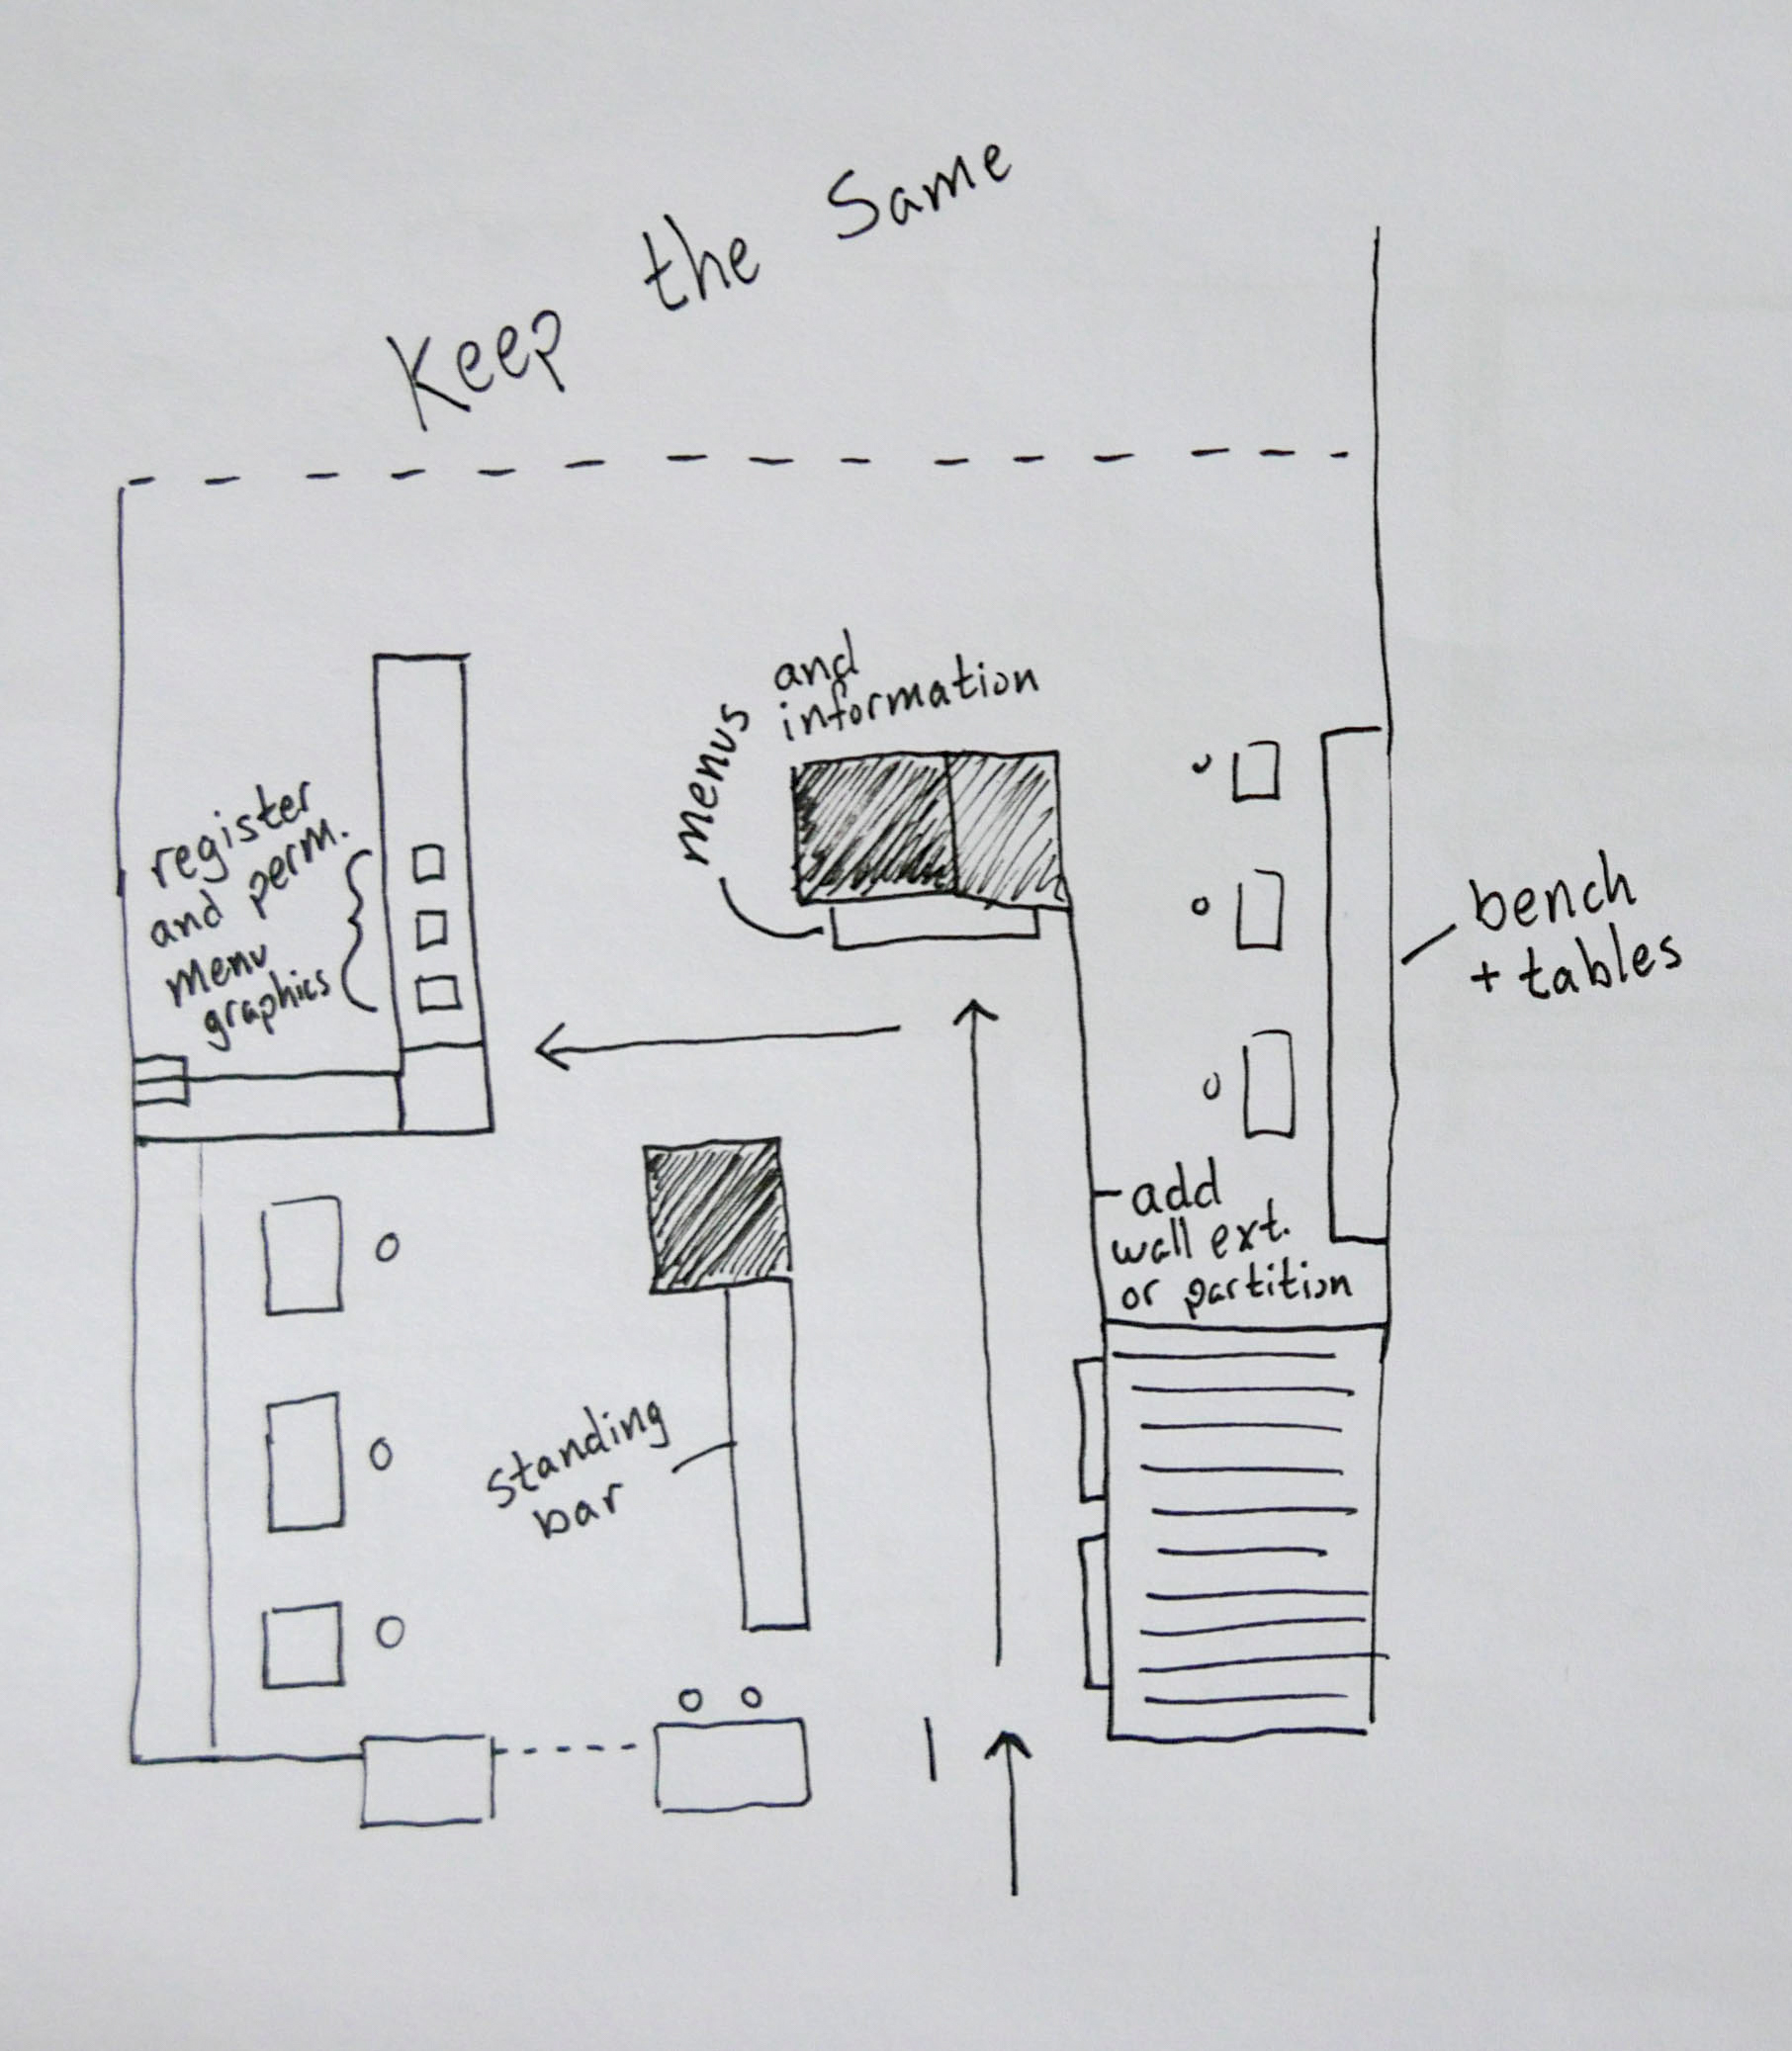 Keep the Same
and
menus information
register
and perm.
menu
graphics
bench
+ tables
add
wall ext.
or partition
standing
bar